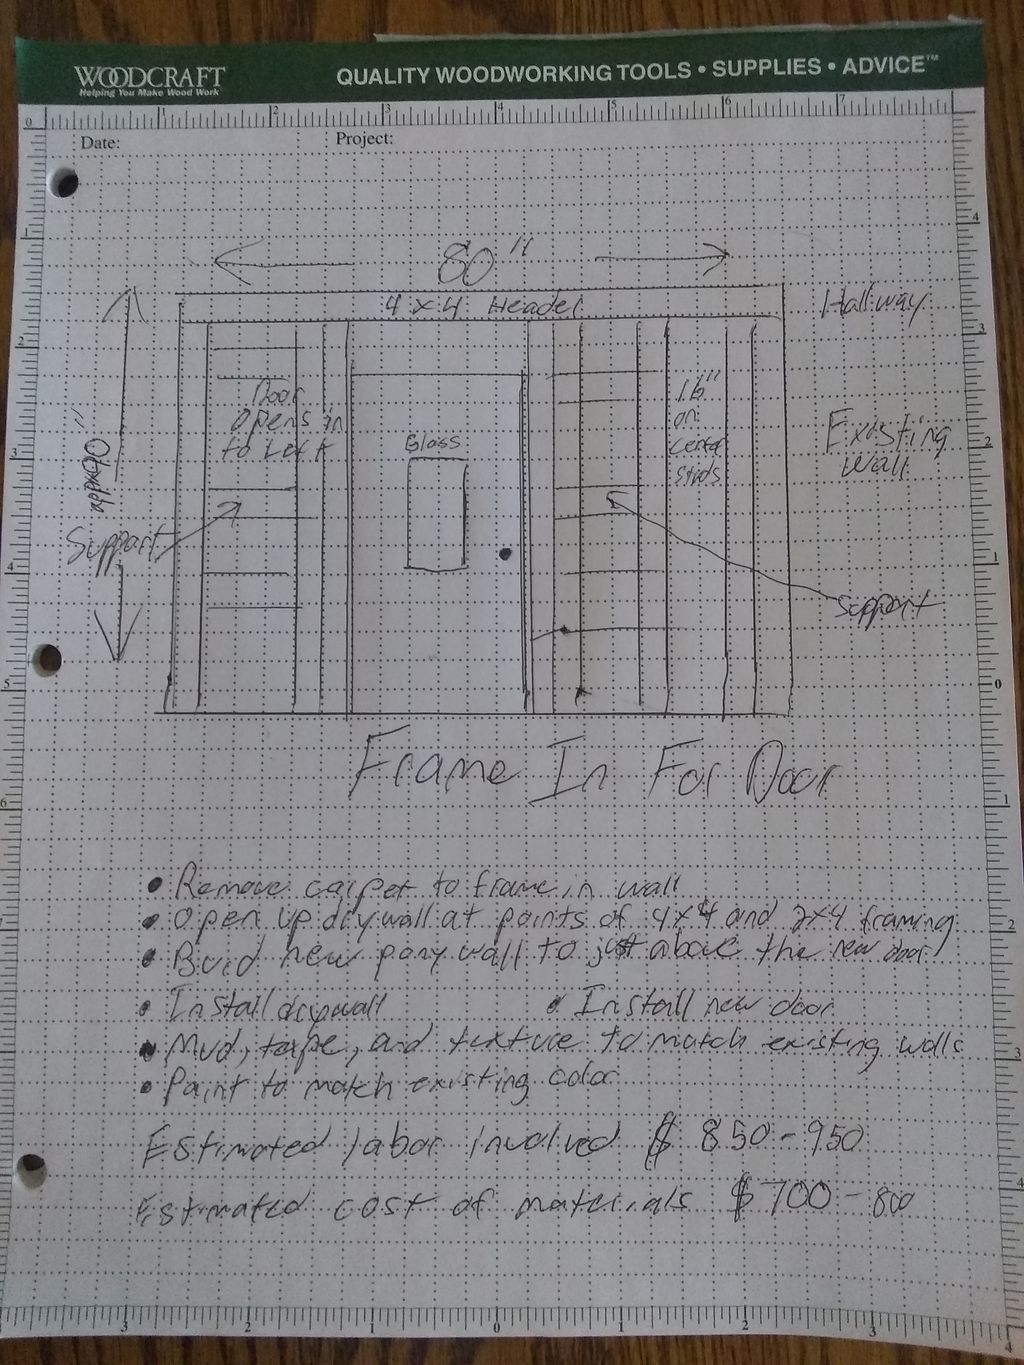 WOODCRAFT
Helping You Make Wood Work
QUALITY WOODWORKING TOOLS • SUPPLIES • ADVICE™
0 1 2 3 4 5 6 7
Date:
Project:
80"
4x4 Header
Hallway
Door
opens in
to Left
Glass
16"
on
center
studs
Existing
Wall
appx 90"
Support
Support
Frame In For Door
• Remove carpet to frame in wall
• Open up drywall at points of 4x4 and 2x4 framing
• Buid new pony wall to just above the new door
• Install drywall
• Install new door
• Mud, tape, and texture to match existing walls
• Paint to match existing color
Estimated labor involved $ 850-950
Estimated cost of materials $ 700-800
1 2 3 4 5 6 7
4 3 2 1 0 1 2 3 4
3 2 1 0 1 2 3 4